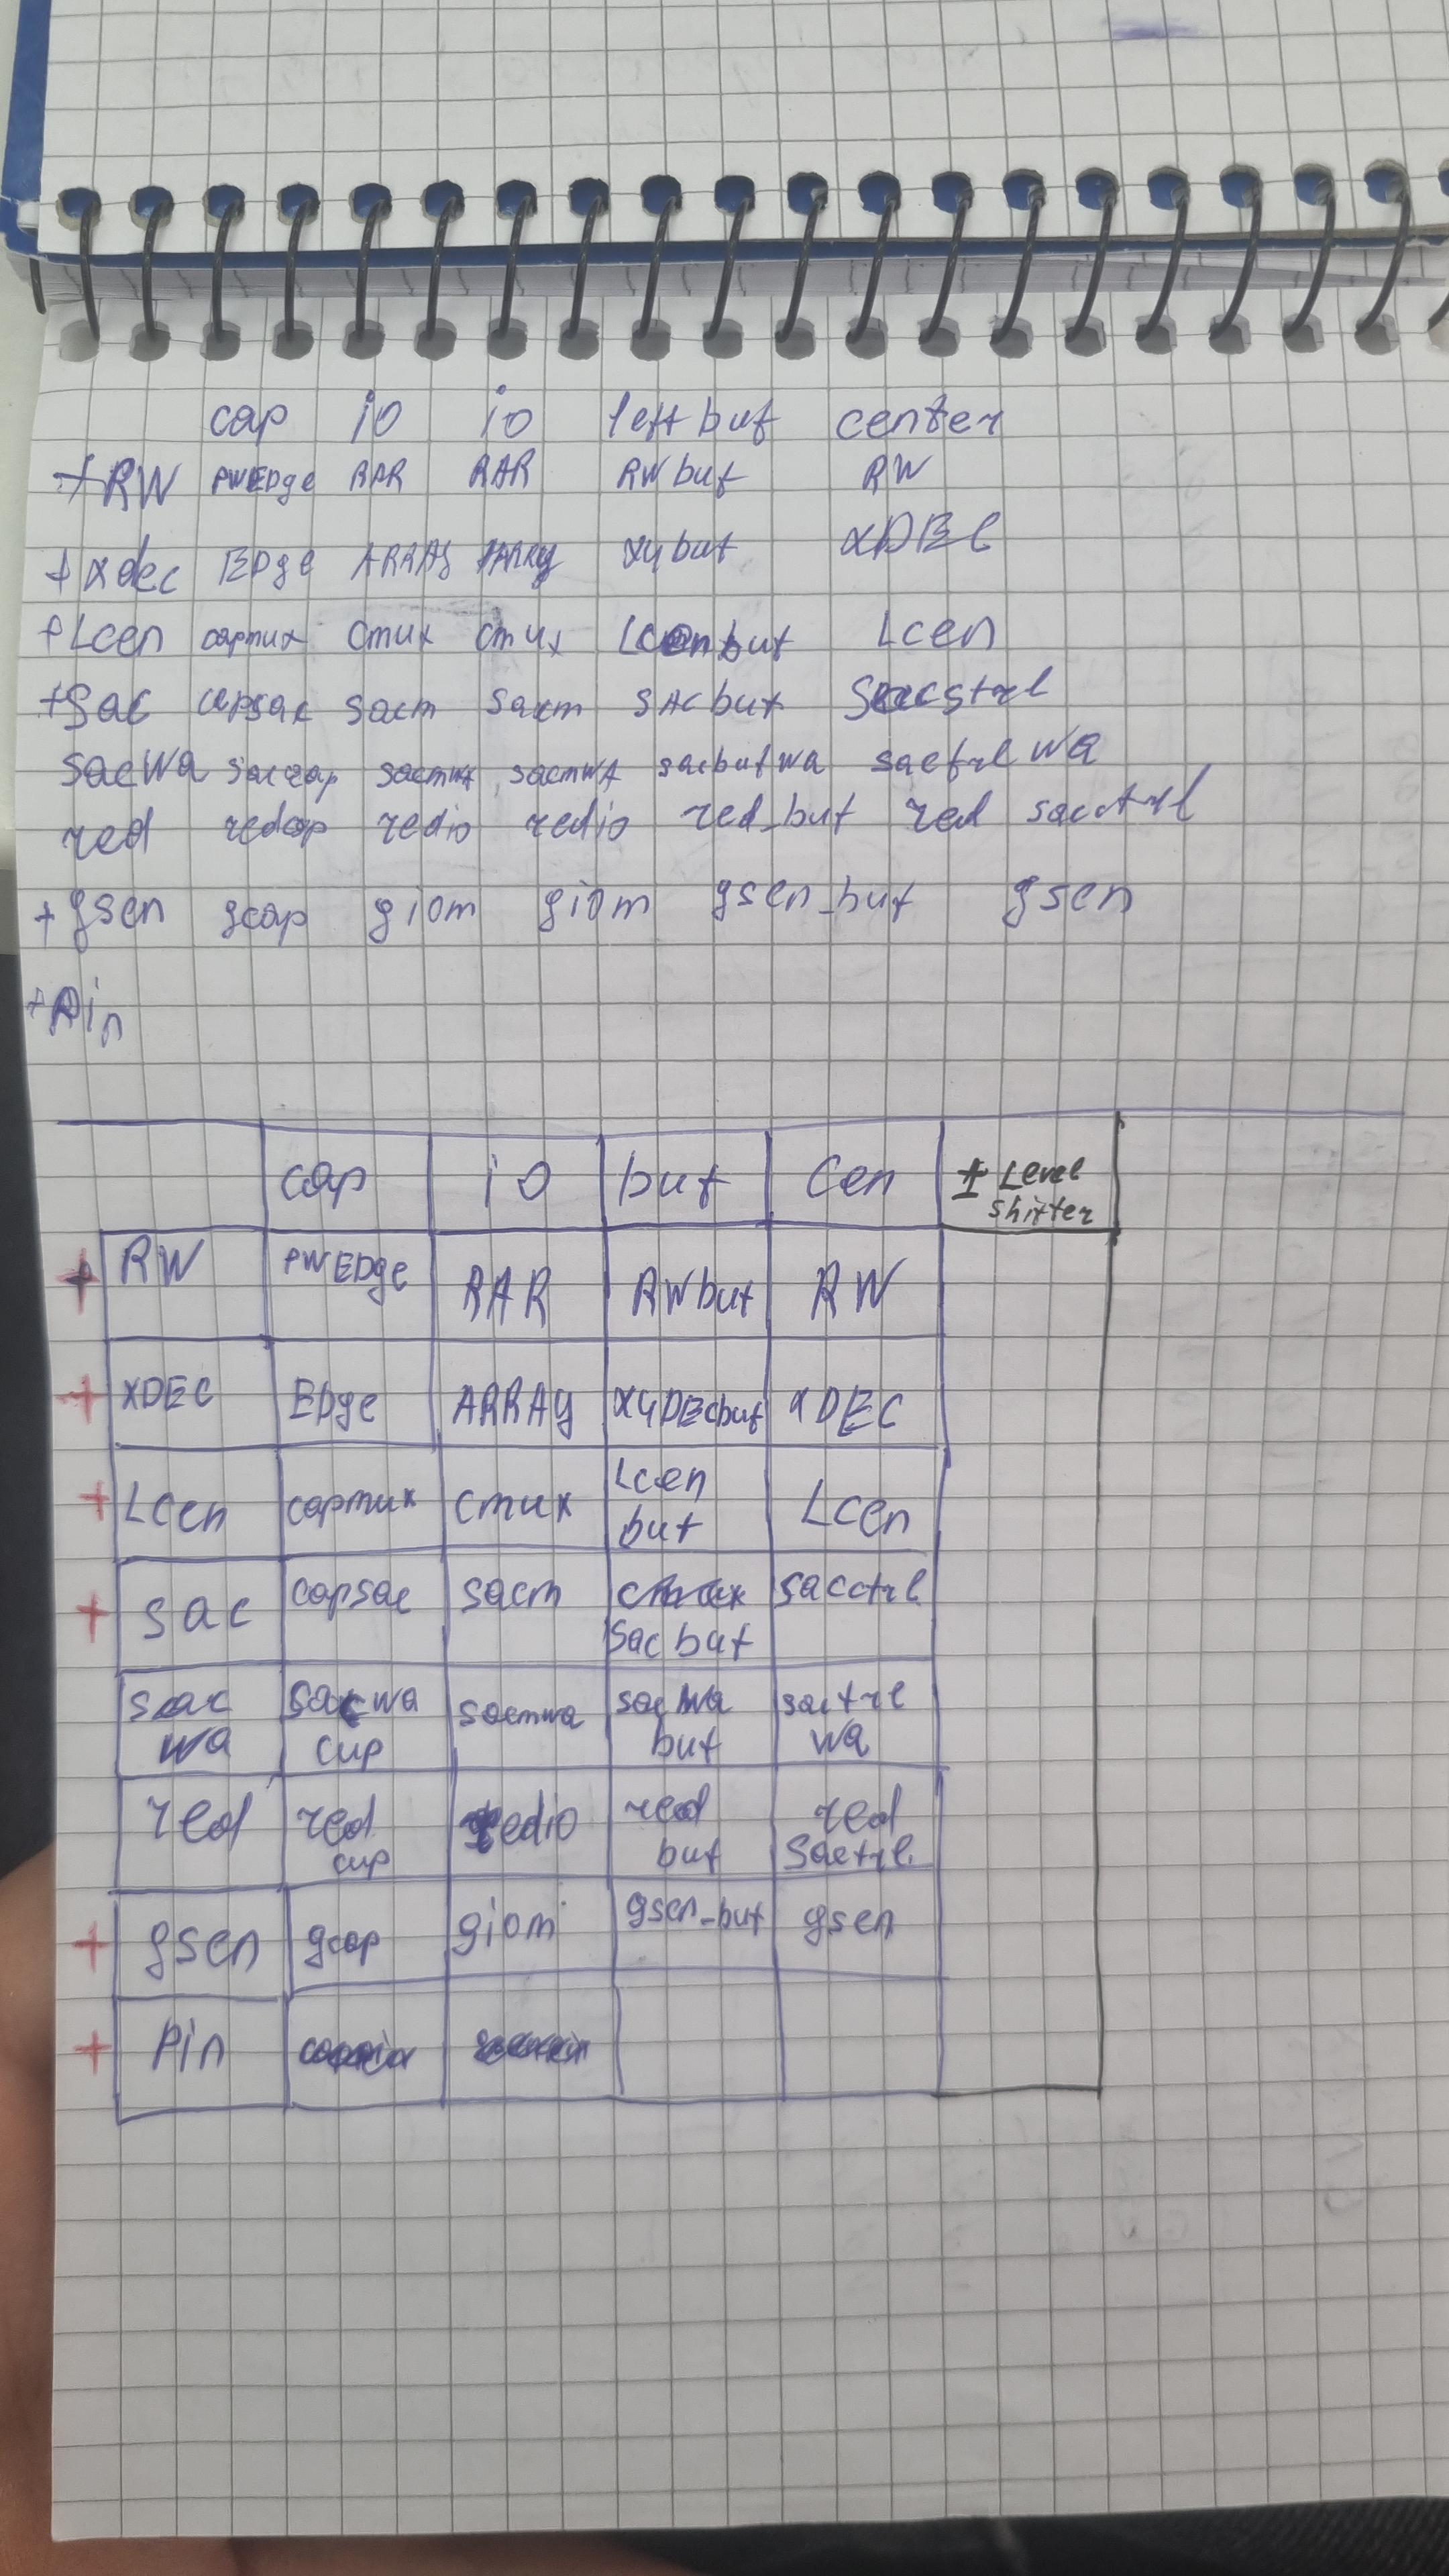 cap io io leftbuf center
+RW PWEDge RAR RAR RWbuf RW
+xdec EDge ARRAY ARRAY xybuf xDEC
+Lcen capmux cmux cmux Lcenbuf Lcen
+Sac capsac sacm sacm SACbuf
sacWa saccap sacmwa sacmWA sacbufwa sactrl wa
red redcap redio redio red_but red sacctrl
+gsen gcap giom giom gsen_but gsen
+Pin
cap io but Cen ± Level
shifter
+ RW PWEDge RAR RWbut RW
+ XDEC EDge ARRAY XYDECbuf XDEC
+ Lcen capmux cmux Lcen but Lcen
+ sac capsac sacm Sac but sacctrl
sac wa sacwa cup sacmwa sacwa but sactrl wa
red red cup redio red but red Sactrl
+ gsen gcap giom gsen_but gsen
+ Pin